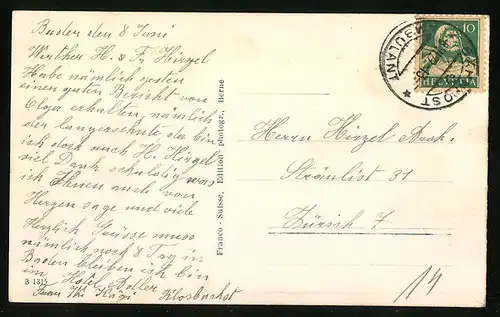 Baden den 8 Juni
Werther H. & Fr. Hirzel
Habe nämlich gestern
einen guten Bericht von
Olga erhalten, nämlich
der langersehnte da bin
ich doch auch H. Hirzel
viel Dank schuldig was
ich Ihnen auch von
Herzen sage und viele
Herzlich Grüsse muss
nämlich noch 8 Tag in
Baden bleiben ich bin
im Hotel Adler
Frau Kägi Klosbachst
B 1315
Franco-Suisse, Edition photogr., Berne
AMBULANT
POST
10
HELVETIA
Herrn Hirzel Buch.
31
Zürich 7